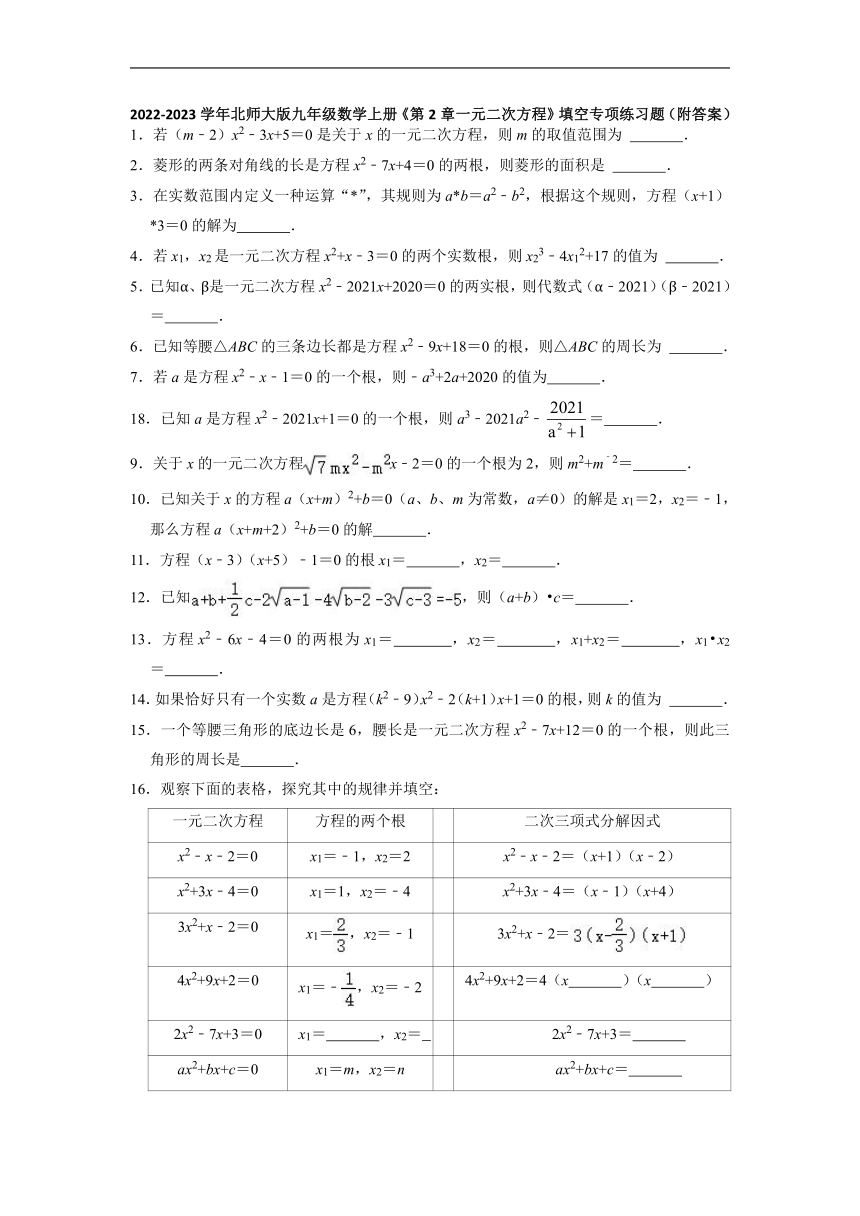 2022-2023学年北师大版九年级数学上册《第2章一元二次方程》填空专项练习题（附答案）
1．若（m﹣2）x²﹣3x+5＝0是关于x的一元二次方程，则m的取值范围为 ______．
2．菱形的两条对角线的长是方程x²﹣7x+4＝0的两根，则菱形的面积是 ______．
3．在实数范围内定义一种运算“*”，其规则为a*b＝a²﹣b²，根据这个规则，方程（x+1）
*3＝0的解为______．
4．若x₁，x₂是一元二次方程x²+x﹣3＝0的两个实数根，则x₂³﹣4x₁²+17的值为 ______．
5．已知α、β是一元二次方程x²﹣2021x+2020＝0的两实根，则代数式（α﹣2021）（β﹣2021）
＝______．
6．已知等腰△ABC的三条边长都是方程x²﹣9x+18＝0的根，则△ABC的周长为 ______．
7．若a是方程x²﹣x﹣1＝0的一个根，则﹣a³+2a+2020的值为______．
18．已知a是方程x²﹣2021x+1＝0的一个根，则a³﹣2021a²﹣2021/(a²+1)＝______．
9．关于x的一元二次方程√7mx²-m²x﹣2＝0的一个根为2，则m²+m⁻²＝______．
10．已知关于x的方程a（x+m）²+b＝0（a、b、m为常数，a≠0）的解是x₁＝2，x₂＝﹣1，
那么方程a（x+m+2）²+b＝0的解______．
11．方程（x﹣3）（x+5）﹣1＝0的根x₁＝______，x₂＝______．
12．已知a+b+1/2c-2√(a-1)-4√(b-2)-3√(c-3)=-5，则（a+b）•c＝______．
13．方程x²﹣6x﹣4＝0的两根为x₁＝______，x₂＝______，x₁+x₂＝______，x₁•x₂
＝______．
14．如果恰好只有一个实数a是方程（k²﹣9）x²﹣2（k+1）x+1＝0的根，则k的值为 ______．
15．一个等腰三角形的底边长是6，腰长是一元二次方程x²﹣7x+12＝0的一个根，则此三
角形的周长是______．
16．观察下面的表格，探究其中的规律并填空：
一元二次方程 方程的两个根 二次三项式分解因式
x²﹣x﹣2＝0 x₁＝﹣1，x₂＝2 x²﹣x﹣2＝（x+1）（x﹣2）
x²+3x﹣4＝0 x₁＝1，x₂＝﹣4 x²+3x﹣4＝（x﹣1）（x+4）
3x²+x﹣2＝0 x₁＝2/3，x₂＝﹣1 3x²+x﹣2＝3(x-2/3)(x+1)
4x²+9x+2＝0 x₁＝﹣1/4，x₂＝﹣2 4x²+9x+2＝4（x______）（x______）
2x²﹣7x+3＝0 x₁＝______，x₂＝_ 2x²﹣7x+3＝______
ax²+bx+c＝0 x₁＝m，x₂＝n ax²+bx+c＝______